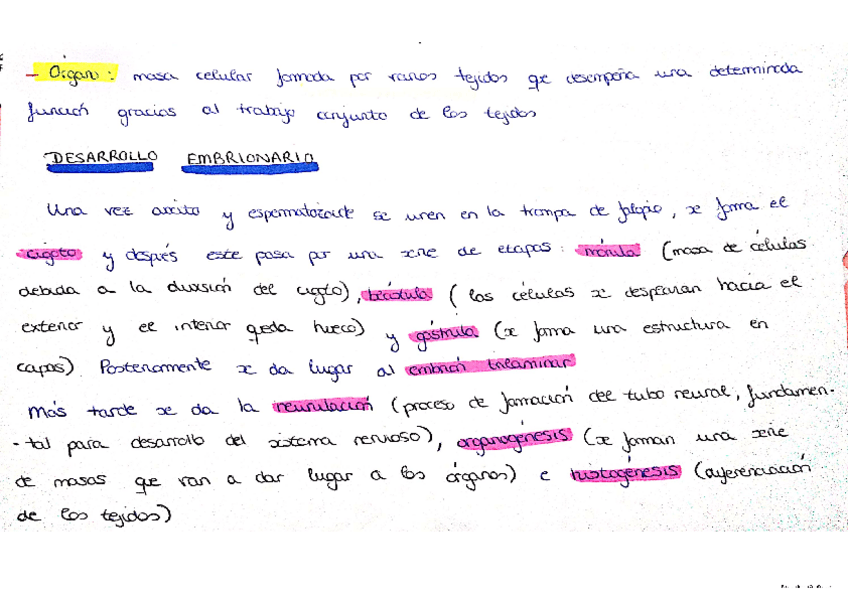 - Órgano: masa celular formada por varios tejidos que desempeña una determinada
función gracias al trabajo conjunto de los tejidos
DESARROLLO EMBRIONARIO
Una vez ovocito y espermatozoide se unen en la trompa de falopio, se forma el
cigoto y después este pasa por una serie de etapas: mórula (masa de células
debida a la división del cigoto), blástula (las células se desplazan hacia el
exterior y el interior queda hueco) y gástrula (se forma una estructura en
capas). Posteriormente se da lugar al embrión trilaminar
Más tarde se da la neurulación (proceso de formación del tubo neural, fundamen-
-tal para desarrollo del sistema nervioso), organogénesis (se forman una serie
de masas que van a dar lugar a los órganos) e histogénesis (diferenciación
de los tejidos)